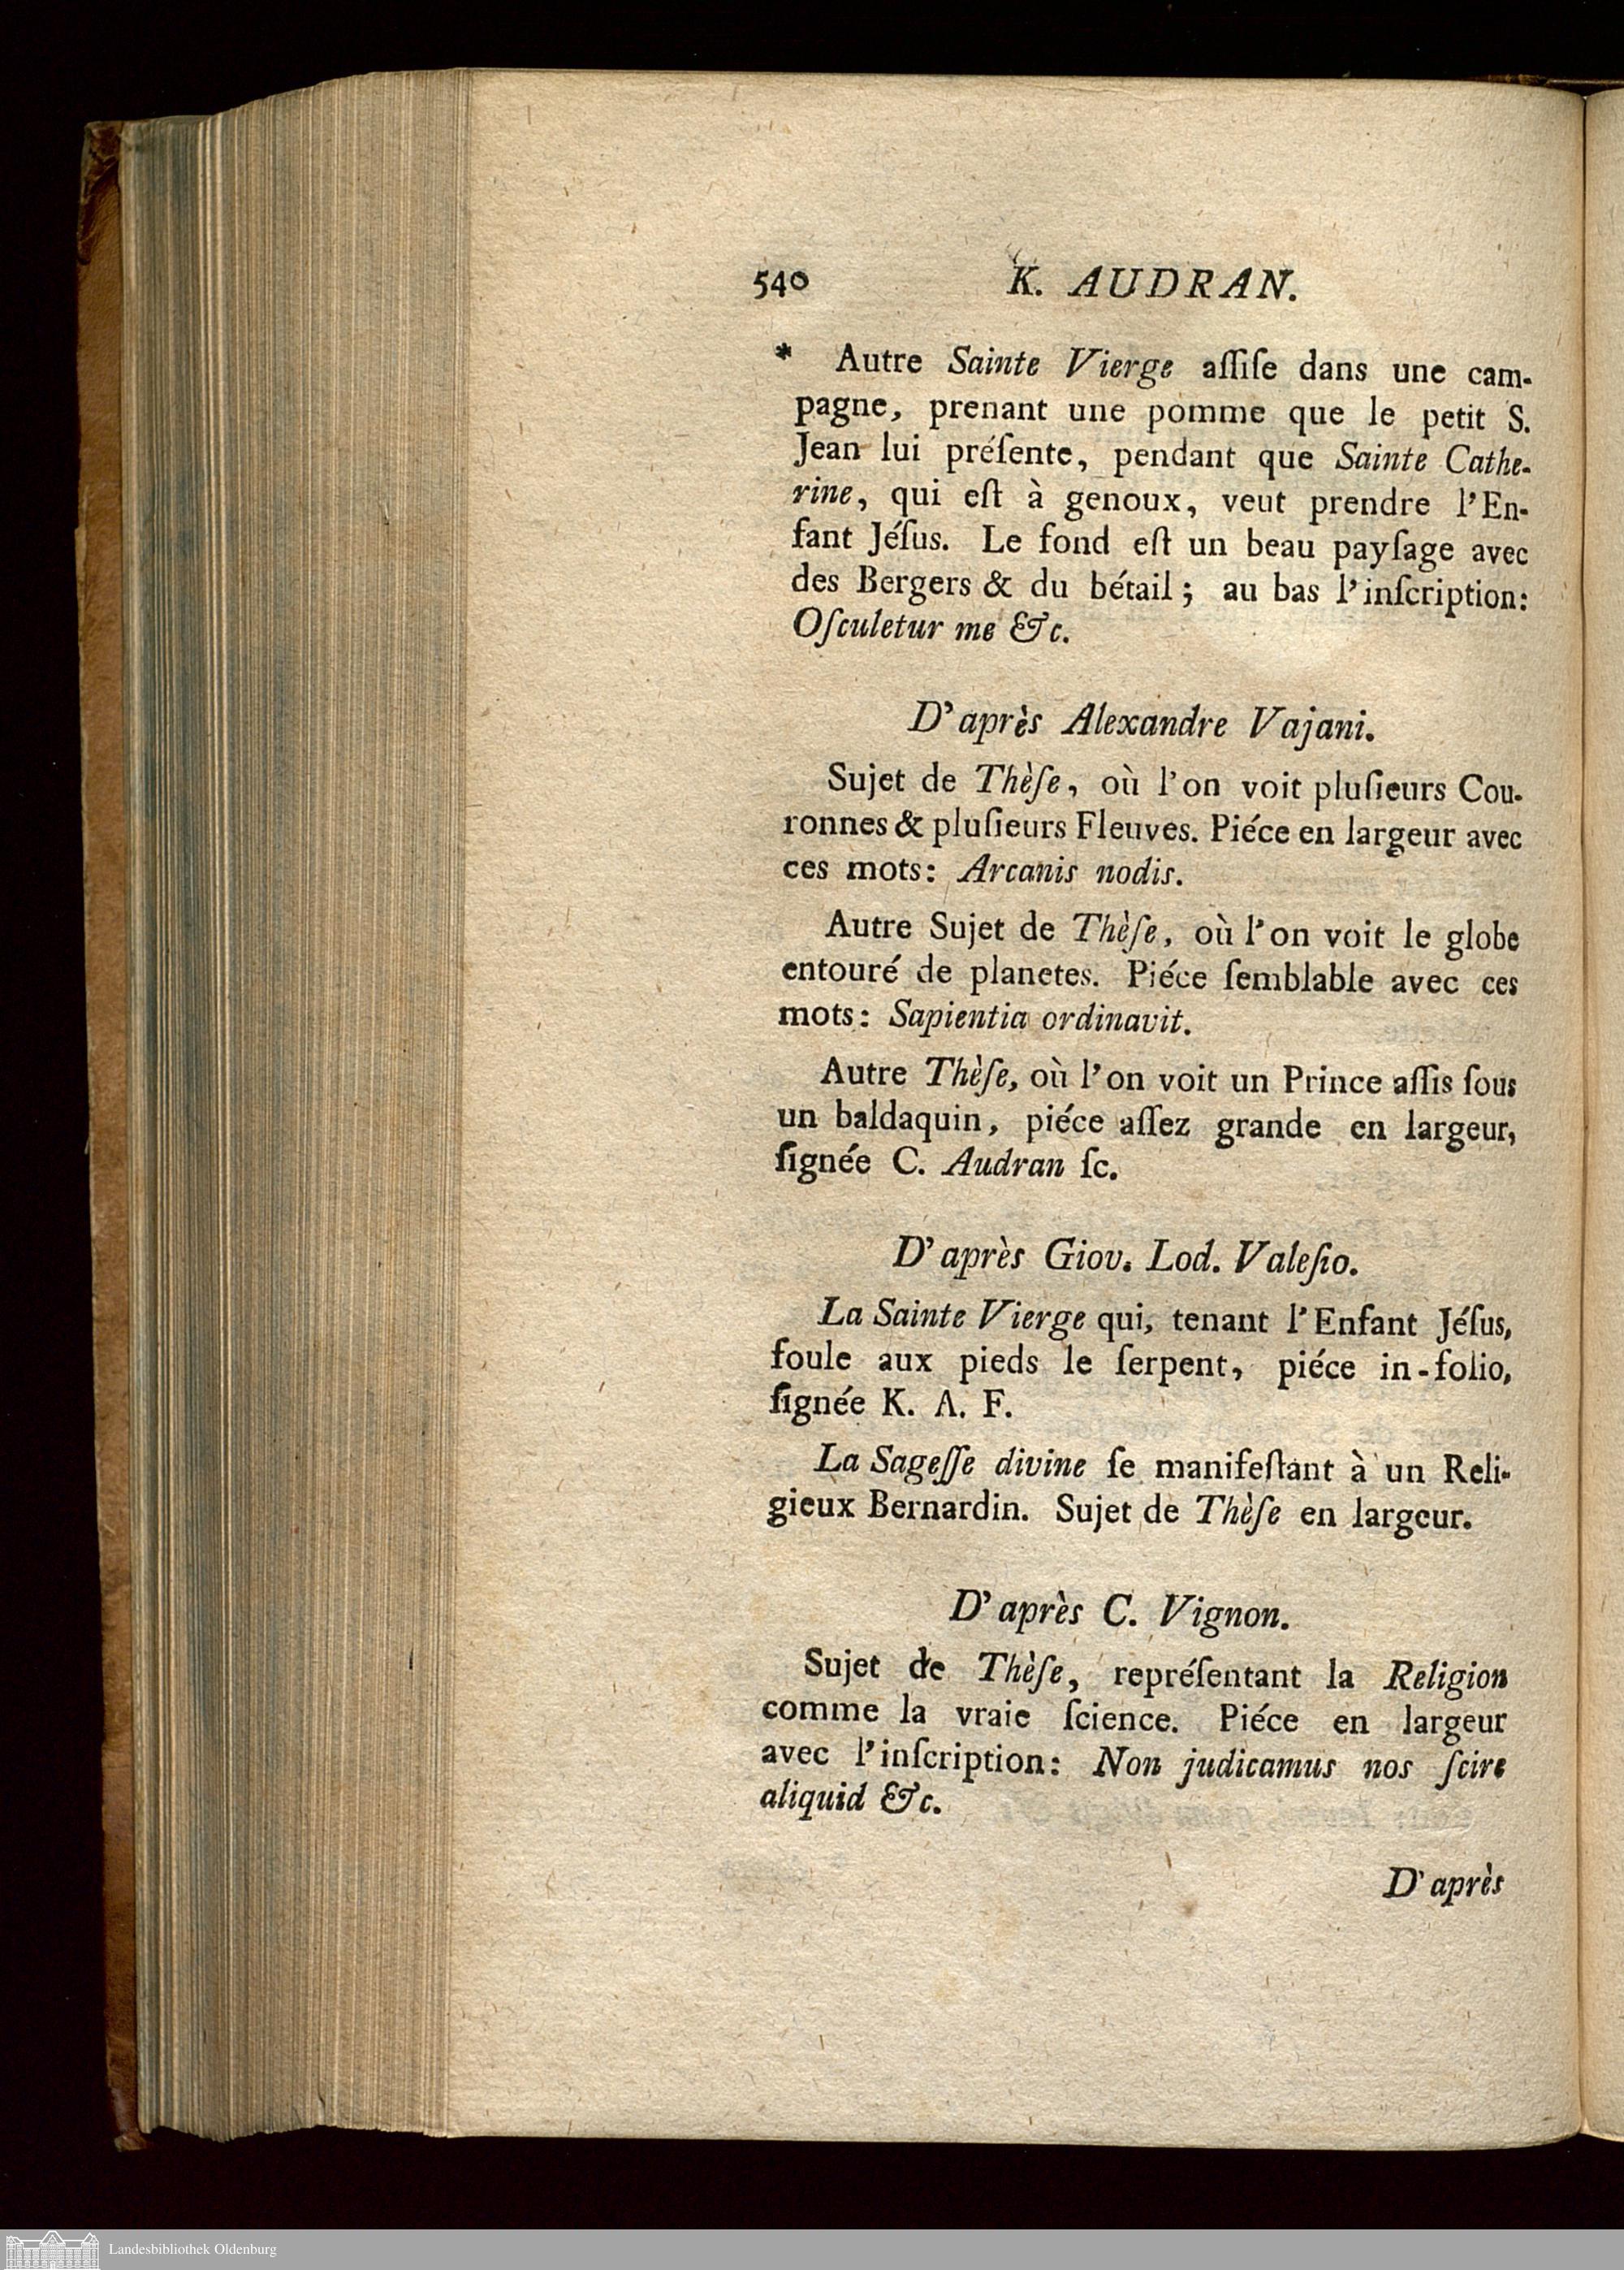 540 K. AUDRAN.
* Autre Sainte Vierge aſſiſe dans une cam-
pagne, prenant une pomme que le petit S.
Jean lui préſente, pendant que Sainte Cathe-
rine, qui eſt à genoux, veut prendre l'En-
fant Jéſus. Le fond eſt un beau payſage avec
des Bergers & du bétail; au bas l'inſcription:
Oſculetur me &c.
D'après Alexandre Vajani.
Sujet de Thèſe, où l'on voit pluſieurs Cou-
ronnes & pluſieurs Fleuves. Piéce en largeur avec
ces mots: Arcanis nodis.
Autre Sujet de Thèſe, où l'on voit le globe
entouré de planetes. Piéce ſemblable avec ces
mots: Sapientia ordinavit.
Autre Thèſe, où l'on voit un Prince aſſis ſous
un baldaquin, piéce aſſez grande en largeur,
ſignée C. Audran ſc.
D'après Giov. Lod. Valeſio.
La Sainte Vierge qui, tenant l'Enfant Jéſus,
foule aux pieds le ſerpent, piéce in-folio,
ſignée K. A. F.
La Sageſſe divine ſe manifeſtant à un Reli-
gieux Bernardin. Sujet de Thèſe en largeur.
D'après C. Vignon.
Sujet de Thèſe, repréſentant la Religion
comme la vraie ſcience. Piéce en largeur
avec l'inſcription: Non judicamus nos ſcire
aliquid &c.
D'après
Landesbibliothek Oldenburg